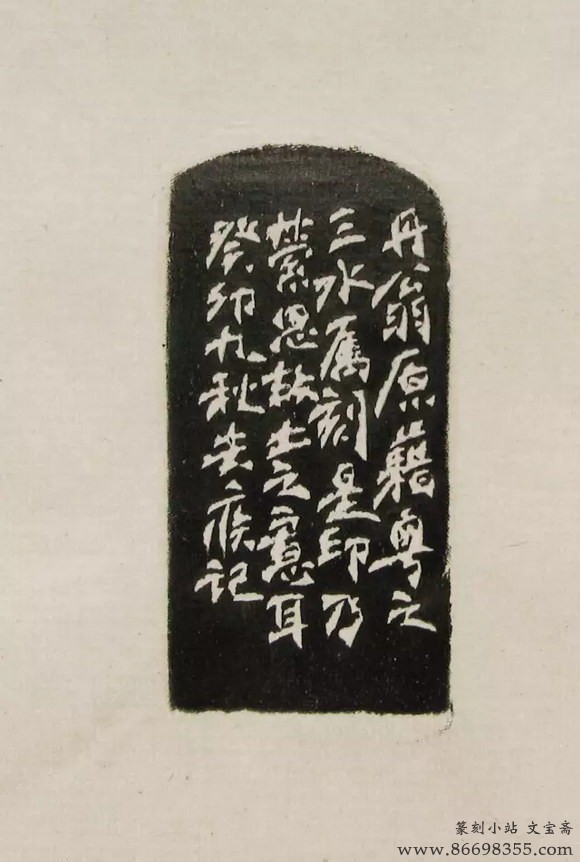 丹翁原籍粤之
三水属刻是印乃
萦思故土之意耳
癸卯九秋去疾记
篆刻小站 文宝斋
www.86698355.com